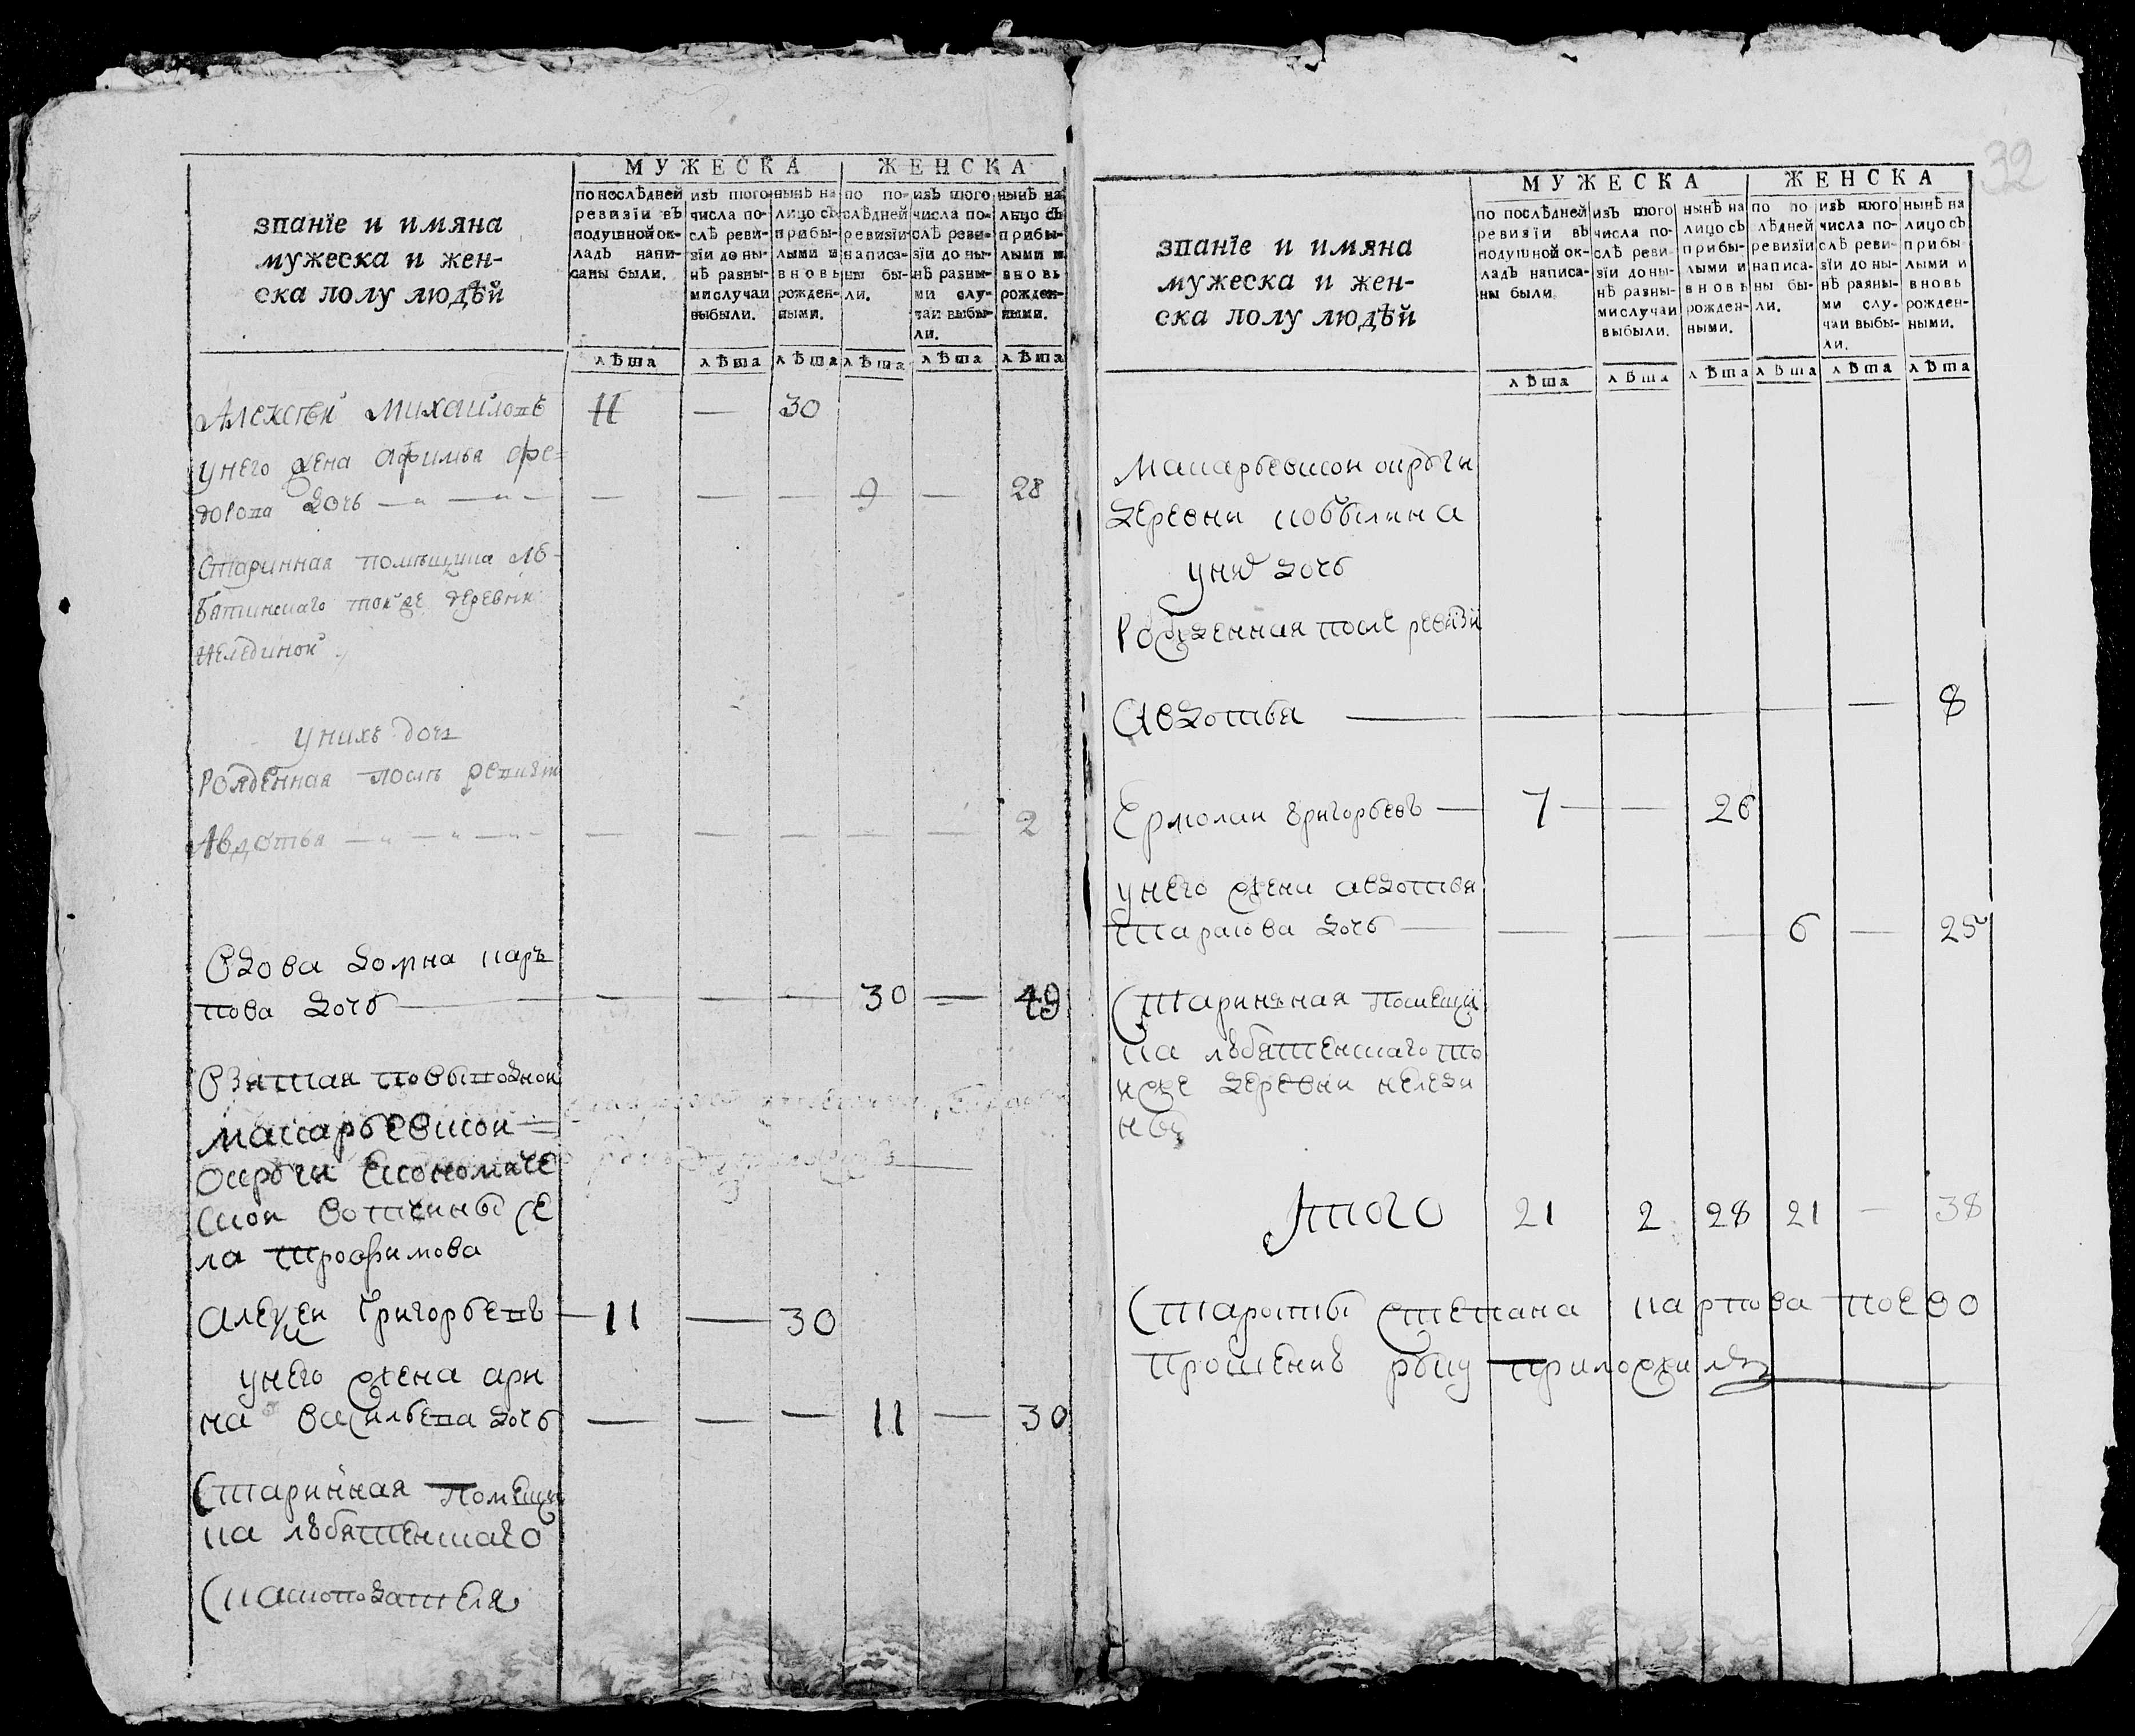 32
МУЖЕСКА ЖЕНСКА
званїе и имяна
мужеска и жен-
ска полу людѣй
по послѣдней
ревизїи въ
подушной ок-
ладъ напи-
саны были.
изъ того
числа по-
слѣ реви-
зїи до ны-
нѣ разны-
ми случаи
выбыли.
нынѣ на
лицо съ
прибы-
лыми и
вновь
рожден-
ными.
по по-
слѣдней
ревизїи
написа-
ны бы-
ли.
изъ того
числа по-
слѣ реви-
зїи до ны-
нѣ разны-
ми слу-
чаи выбы-
ли.
нынѣ на
лицо съ
прибы-
лыми и
вновь
рожден-
ными.
лѣта лѣта лѣта лѣта лѣта лѣта
Алексѣй Михайловъ 11 — 30
у него жена Афимья Фе-
дорова дочь — — — 9 — 28
старинная помѣщика
того же деревни
у нихъ дочь
рожденная послѣ ревизїи
Авдотья — — — — — 2
вдова домна кар
пова дочь — — — 30 — 49
взятая повыводной
макарьевской
округи економиче
ской вотчины се
ла трофимова
алексей григорьевъ 11 — 30
у него жена ари
на васильева дочь — — — 11 — 30
старинная помещи
ка
МУЖЕСКА ЖЕНСКА
званїе и имяна
мужеска и жен-
ска полу людѣй
по послѣдней
ревизїи въ
подушной ок-
ладъ написа-
ны были.
изъ того
числа по-
слѣ реви-
зїи до ны-
нѣ разны-
ми случаи
выбыли.
нынѣ на
лицо съ
прибы-
лыми и
вновь
рожден-
ными.
по по
лѣдней
ревизїи
написа-
ны бы-
ли.
изъ того
числа по-
слѣ реви-
зїи до ны-
нѣ разны-
ми слу-
чаи выбы-
ли.
нынѣ на
лицо съ
прибы-
лыми и
вновь
рожден-
ными.
лѣта лѣта лѣта лѣта лѣта лѣта
макарьевской округи
деревни кобылина
у них дочь
рожденная после ревизи
авдотья — — — — — 8
Ермолаи григорьевъ — 7 — 26
у него жена авдотья
тарасова дочь — — — 6 — 25
стариная помещи
ка
же деревни
Итого 21 2 28 21 — 38
старосты степана карпова по ево
прошению руку приложилъ